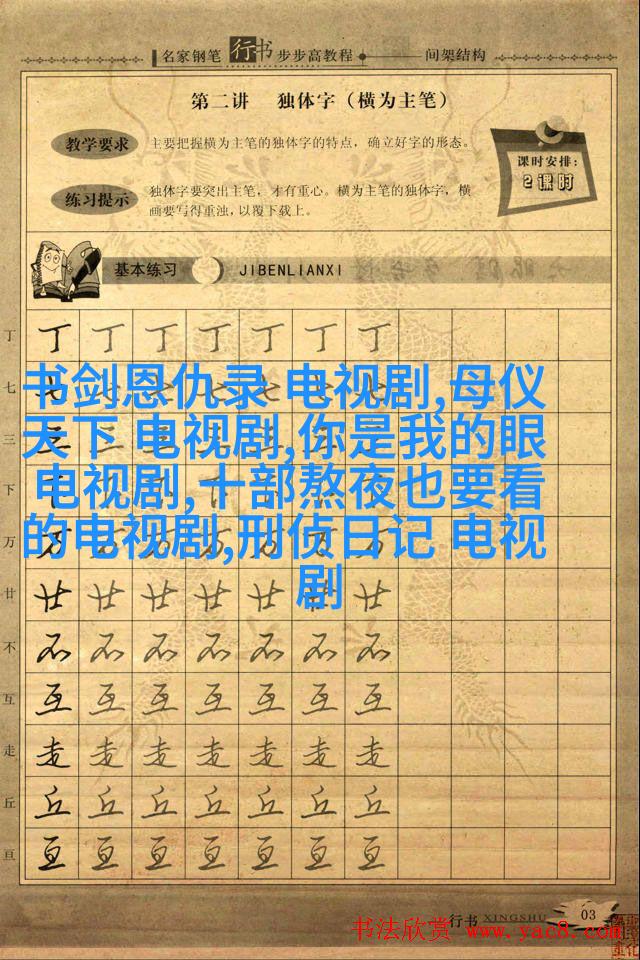 名家钢笔 行书 步步高教程 间架结构
第二讲 独体字（横为主笔）
教学要求 主要把握横为主笔的独体字的特点，确立好字的形态。
课时安排：
2课时
练习提示 独体字要突出主笔，才有重心。横为主笔的独体字，横
画要写得重浊，以覆下载上。
基本练习 JIBENLIANXI
丁 丁 丁 丁 丁 丁 丁 丁
七
书剑恩仇录 电视剧,母仪
三
天下 电视剧,你是我的眼
下
电视剧,十部熬夜也要看
万
的电视剧,刑侦日记 电视
剧
廿 廿 廿 廿 廿 廿 廿 廿
不 不 不 不 不 不 不 不
互 互 互 互 互 互 互 互
走 走 走 走 走 走 走 走
丘 丘 丘 丘 丘 丘 丘 丘
亘 亘 亘 亘 亘 亘 亘 亘
行书 XINGSHU 03
书法欣赏 www.yac8.com